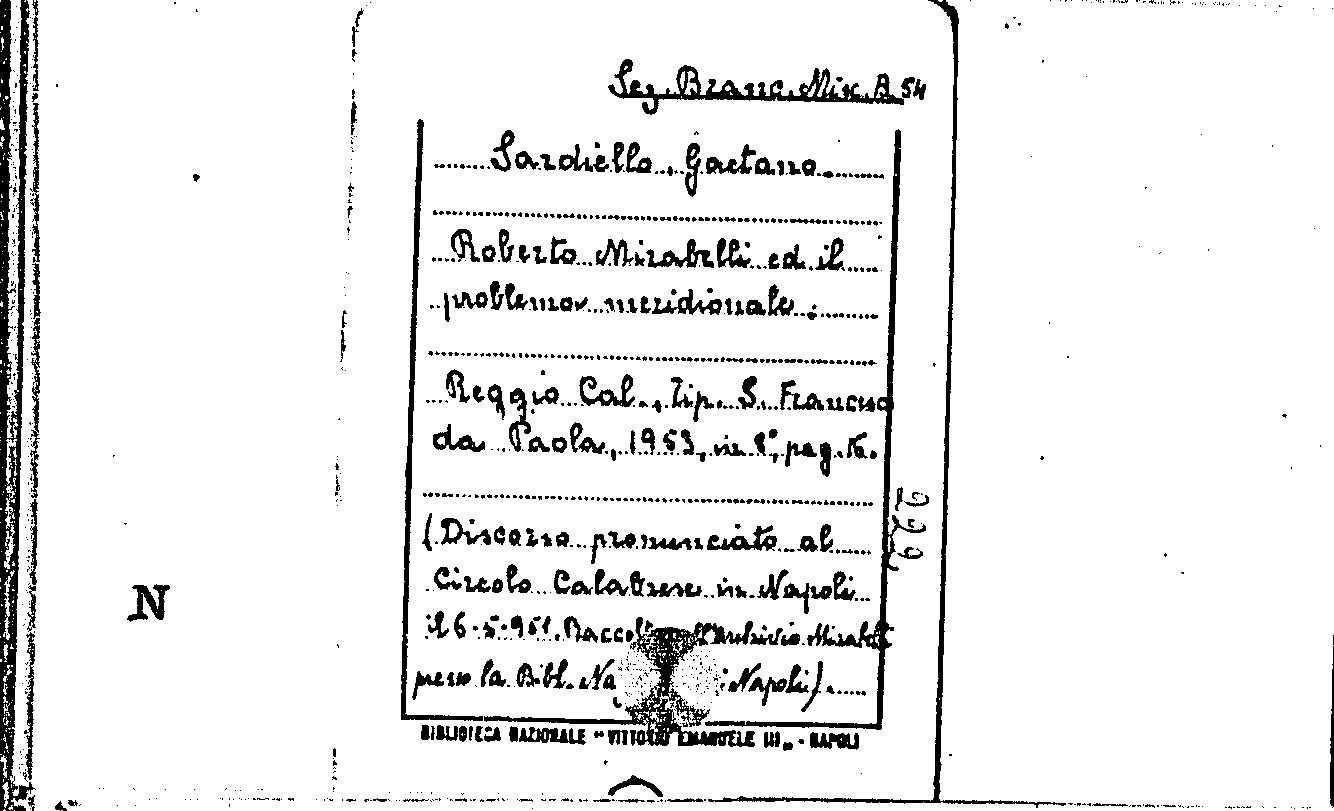 Sez. Branc. Misc. B. 54
Sardiello, Gaetano.
Roberto Mirabelli ed il
problema meridionale.
Reggio Cal., Tip. S. Francesco
da Paola, 1953, in 8°, pag.
(Discorso pronunciato al
Circolo Calabrese in Napoli
il 6-5-951. Mirabelli
presso la Bibl. Na Napoli).
BIBLIOTECA NAZIONALE "VITTORIO EMANUELE III„ - NAPOLI
N